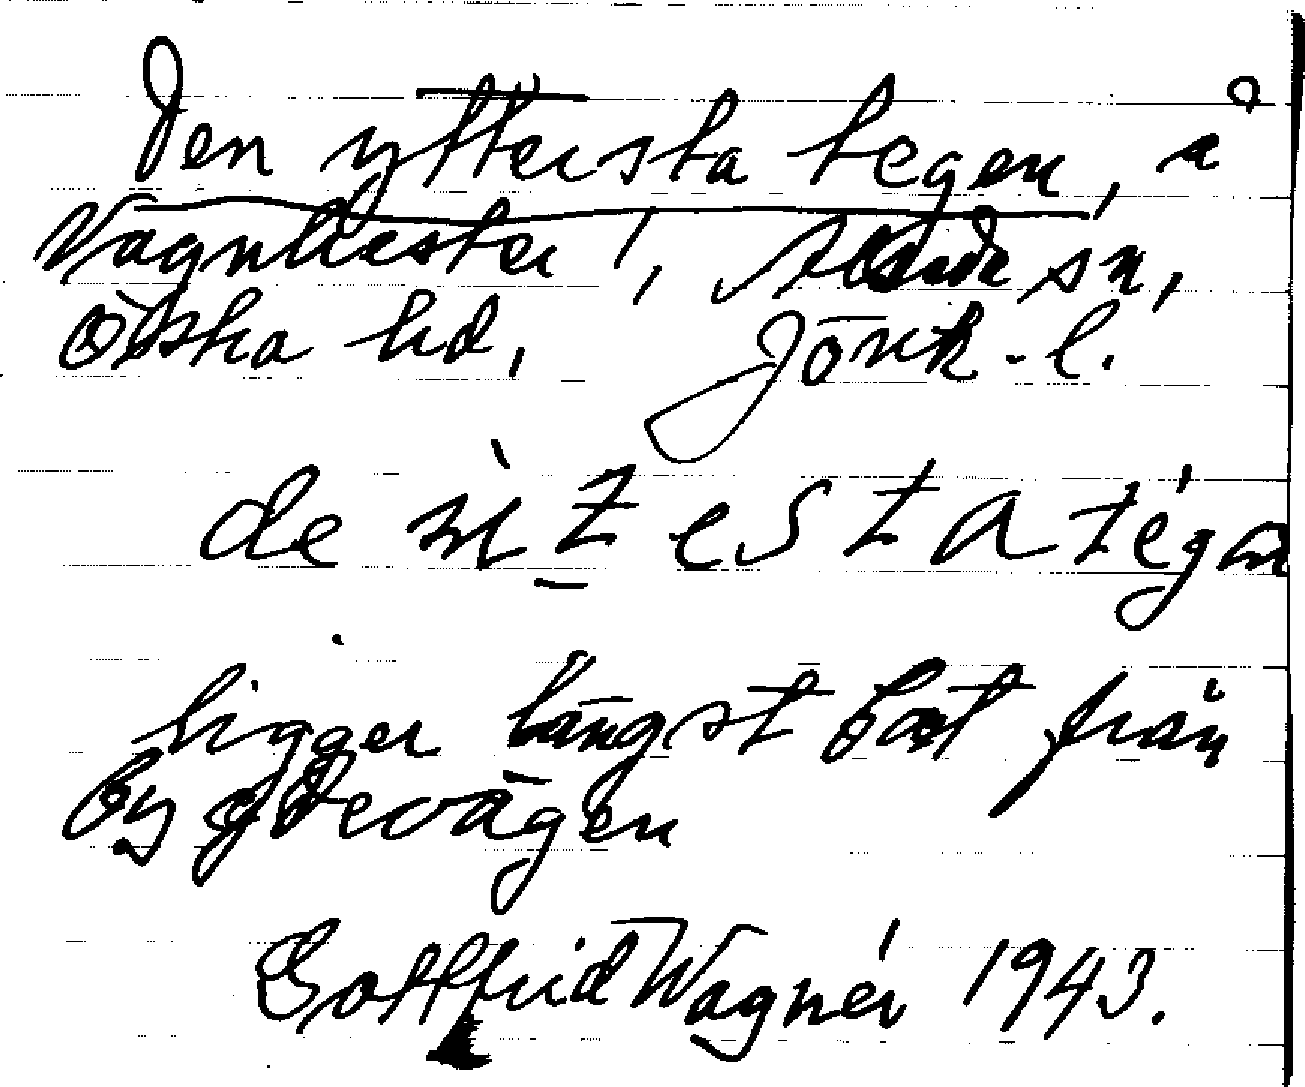 Den yttersta tegen, å
Vagnhester, sn,
Östra hd. Jönk. l.
de ìtesta tégen
ligger längst bort från
bygdevägen
Gottfrid Wagnér 1943.